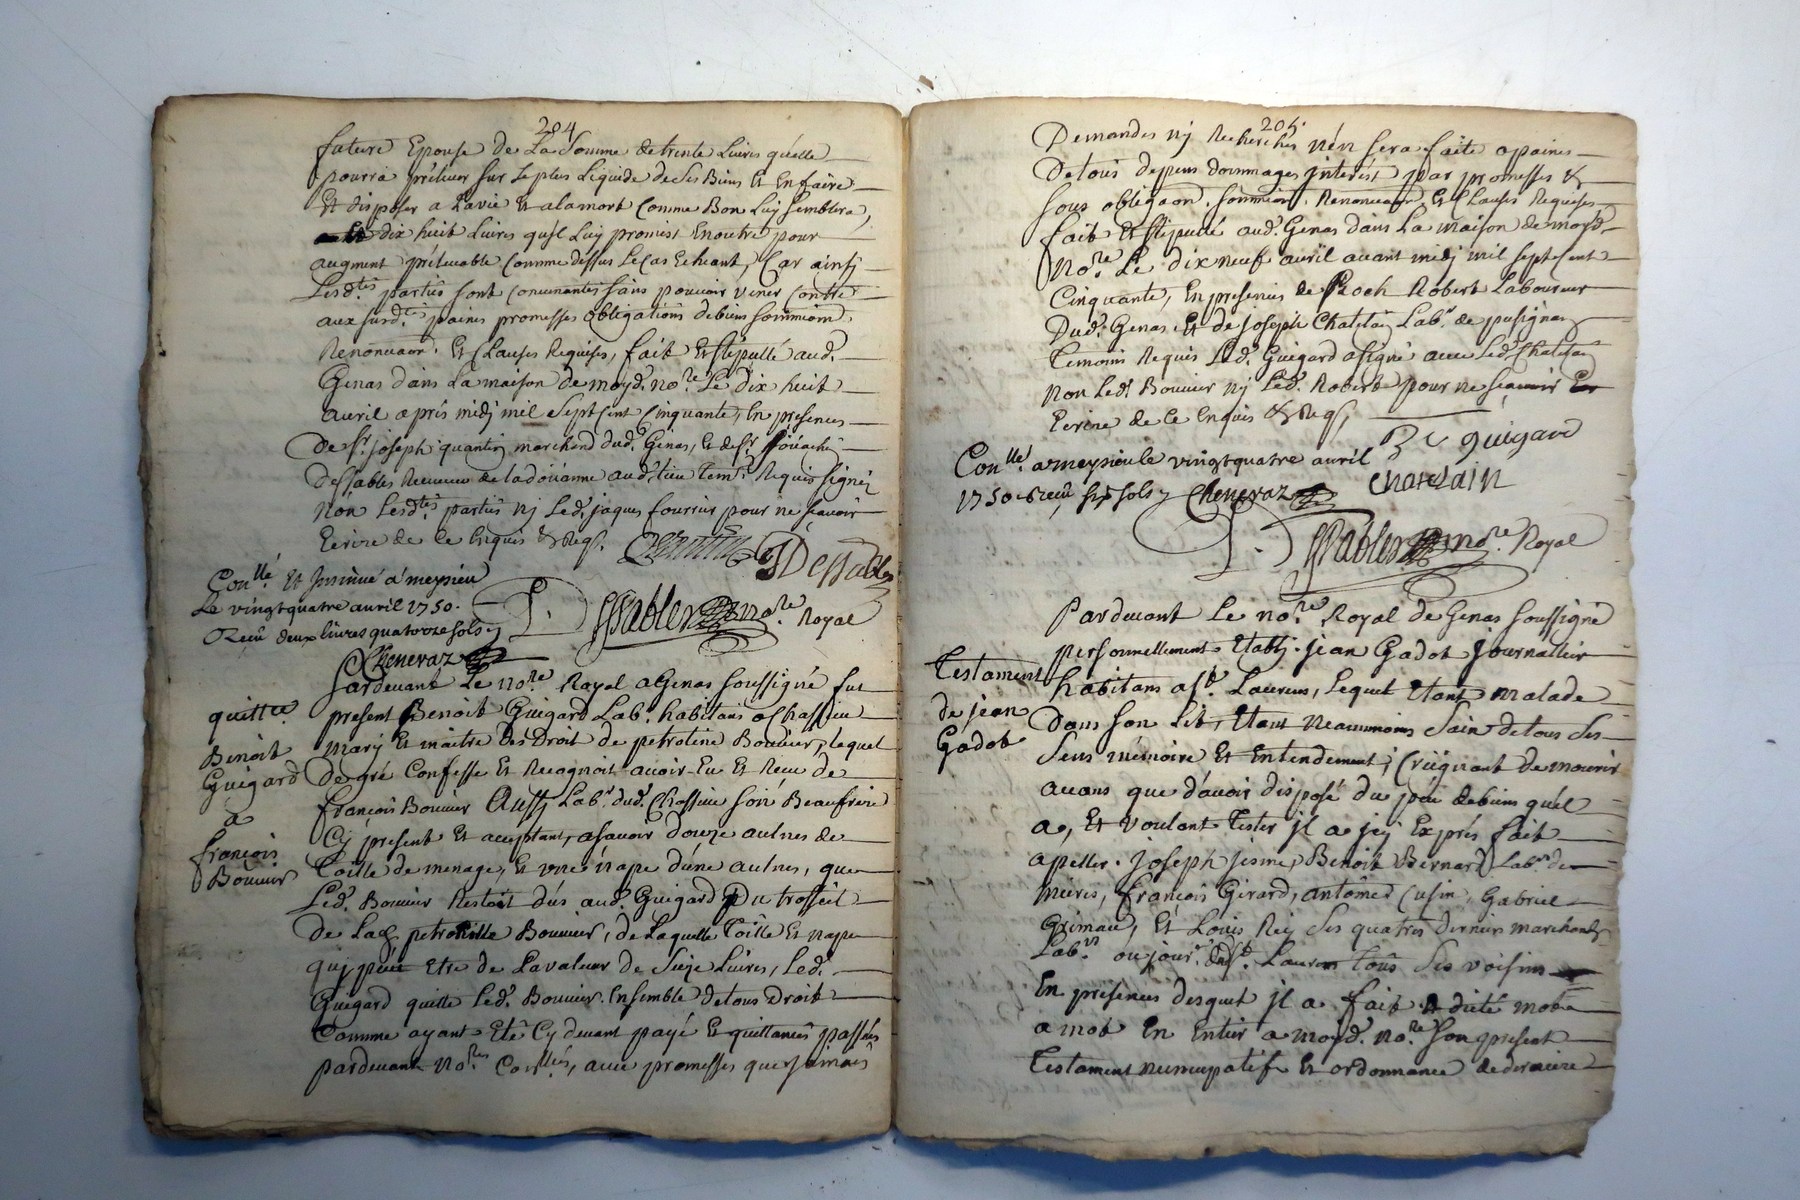 204
future Epouse de La Somme de trente Livres qu'elle
pourra prélever sur le plus liquide de ses Biens Et En faire
Et disposer a Lavie Et alamort Comme Bon Luy semblera,
Et dix huit Livres qu'jl Luy promist Enoutre pour
augment prélevable Comme dessus Le cas Echeant, Car ainsj
Lesd.tes partiës sont Convenantes sans pouvoir venir Contre
aux susd.tes paines promesses obligations debiens sommiom.
Renonuaon. Et Clauses Requises, fait Et stipullé aud.
Genas dans La maison de moyd. no.re Le dix huit
avril aprés midj mil sept Cent Cinquante, En presences
De s.r joseph quantin marchand dud. Genas, Et de s.r
Dessables Receveur de ladoüanne aud. lieu tem. Requis signés
Non Lesd.tes partiës nj Led. jaques fournier pour ne scavoir
Ecrire de Ce Enquis & Req.
Dessables
Con.llé Et Jnsinué á meysieu
Le vingt quatre avril 1750.
Receu deux livres quatorze sols
Dessables no.re Royal
Cheneraz
Pardevant Le no.re Royal a Genas soussigné fut
quittce
present Benoit Guigard Lab.r habitans a Chassieu
Mary Et maitre des Droit de petroline Bouvier, lequel
Benoit
Guigard
De gré Confesse Et Recognoit avoir Eu Et Receu de
a
françois Bouvier Aussy Lab.r dud. Chassieu son Beaufrere
Cy present Et acceptant, a savoir douze aulnes de
françois
Bouvier
Toille de menage, Et une nape dúne aulnes, que
Led. Bouvier Restoit dús aud. Guigard Du trosseit
De Lad. petronille Bouvier, de Laquelle Toille Et nape
quj peut Etre de Lavaleur de Seize Livres, Led.
Guigard quitte Led. Bouvier Ensemble de tous Droit
Comme ayant Eté Cy devant payé Et quittances passées
pardevant No.res avec promesses que jamais
205.
Demandes nj Recherches n'en sera faite a paines
De tous depens dommages jnterést par promesses &
sous obligaon. sommiom. Renonuaon Et Clauses Requises
fait Et stipullé aud. Genas dans La maison de moyd.
No.re Le dix neuf avril avant midj mil sept Cent
Cinquante, En presences de Roch Robert Laboureur
Dud. Genas Et de joseph Chatelain Lab.r de pusignan
Temoins Requis Led. Guigard a signé avec Led. Chatelain
Non Led. Bouvier nj Led. Robert pour ne scavoir
Ecrire de Ce Enquis & Req.
B guigard
Con.llé a meysieu le vingt quatre avril
chatelain
1750 Receu six sols Cheneraz
Dessables no.re Royal
Pardevant Le no.re Royal de Genas soussigné
personnellement Etablj jean Gadot journallier
Testament
habitans a s.t Laurens, Lequel Etant malade
de jean
Gadot
Dans son Lit, Etant neanmoins Sain de tous Ses
Sens mémoire Et Entendement, Craignant de mourir
avans que d'avoir disposé du peu debiens qu'il
a, Et voulant Tester jl a jcy Exprés fait
apeller joseph jesme, Benoit Bernard Lab.rs de
Mures, françois Girard, antoine Cusin, Gabriel
Grimaud, Et Louis Rey Ses quatres derniers marchands
Lab.rs ou jour. dud. s.t Laurens tous Ses voisins
En présences desquel jl a fait & dicté mot
a mot En Entier a moyd. no.re Son present
Testament nuncupatif Et ordonnance de derniere